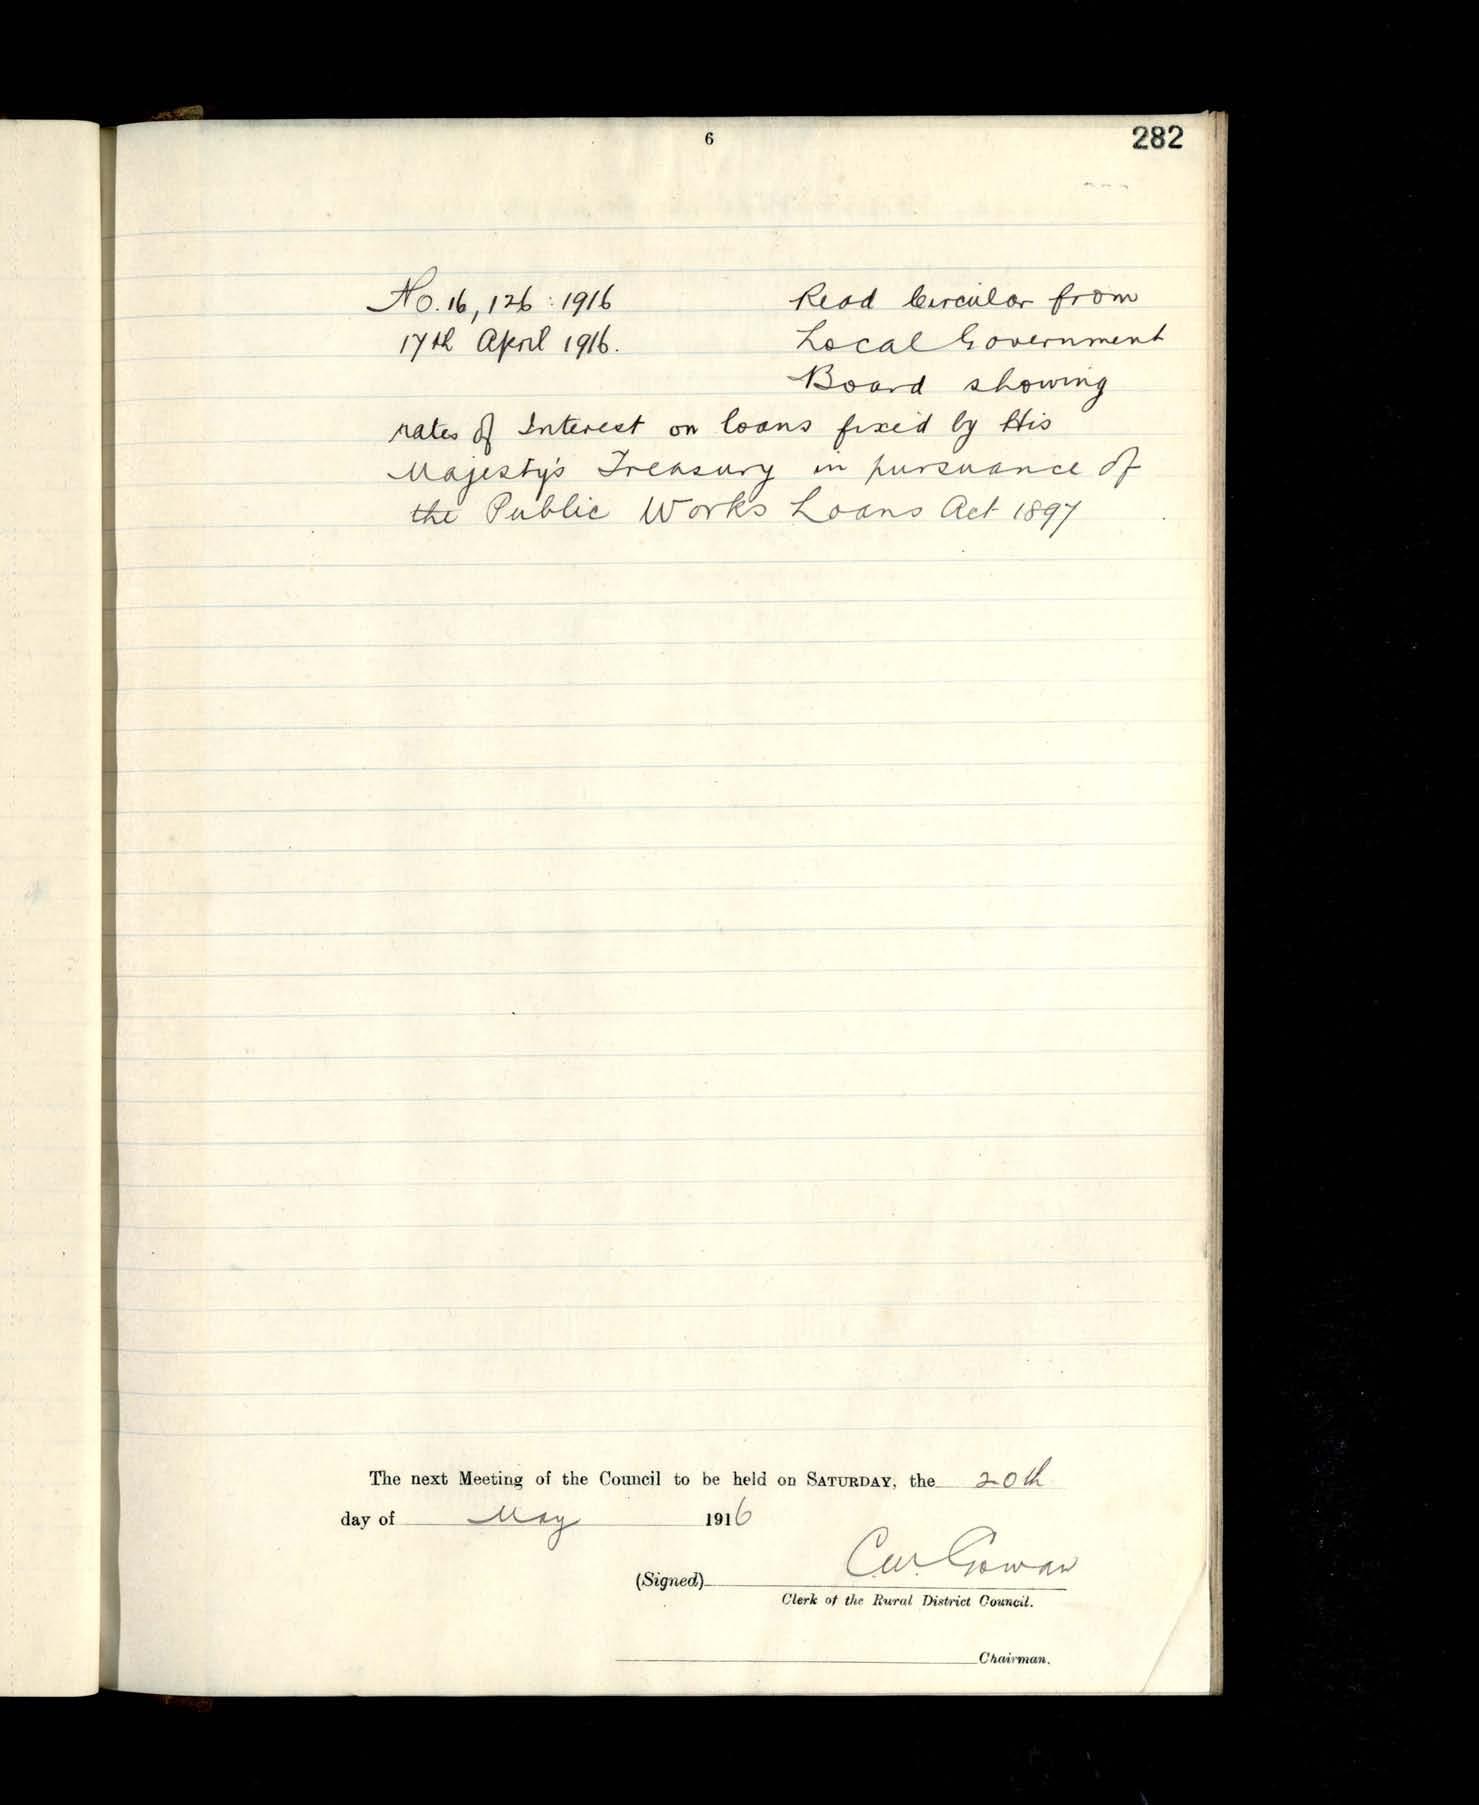 6
282
No. 16,126 : 1916
Read Circular from
17th April 1916.
Local Government
Board showing
rates of Interest on loans fixed by His
Majesty's Treasury in pursuance of
the Public Works Loans Act 1897
The next Meeting of the Council to be held on SATURDAY, the 20th
day of May 1916
(Signed) C.W. Gowan
Clerk of the Rural District Council.
Chairman.